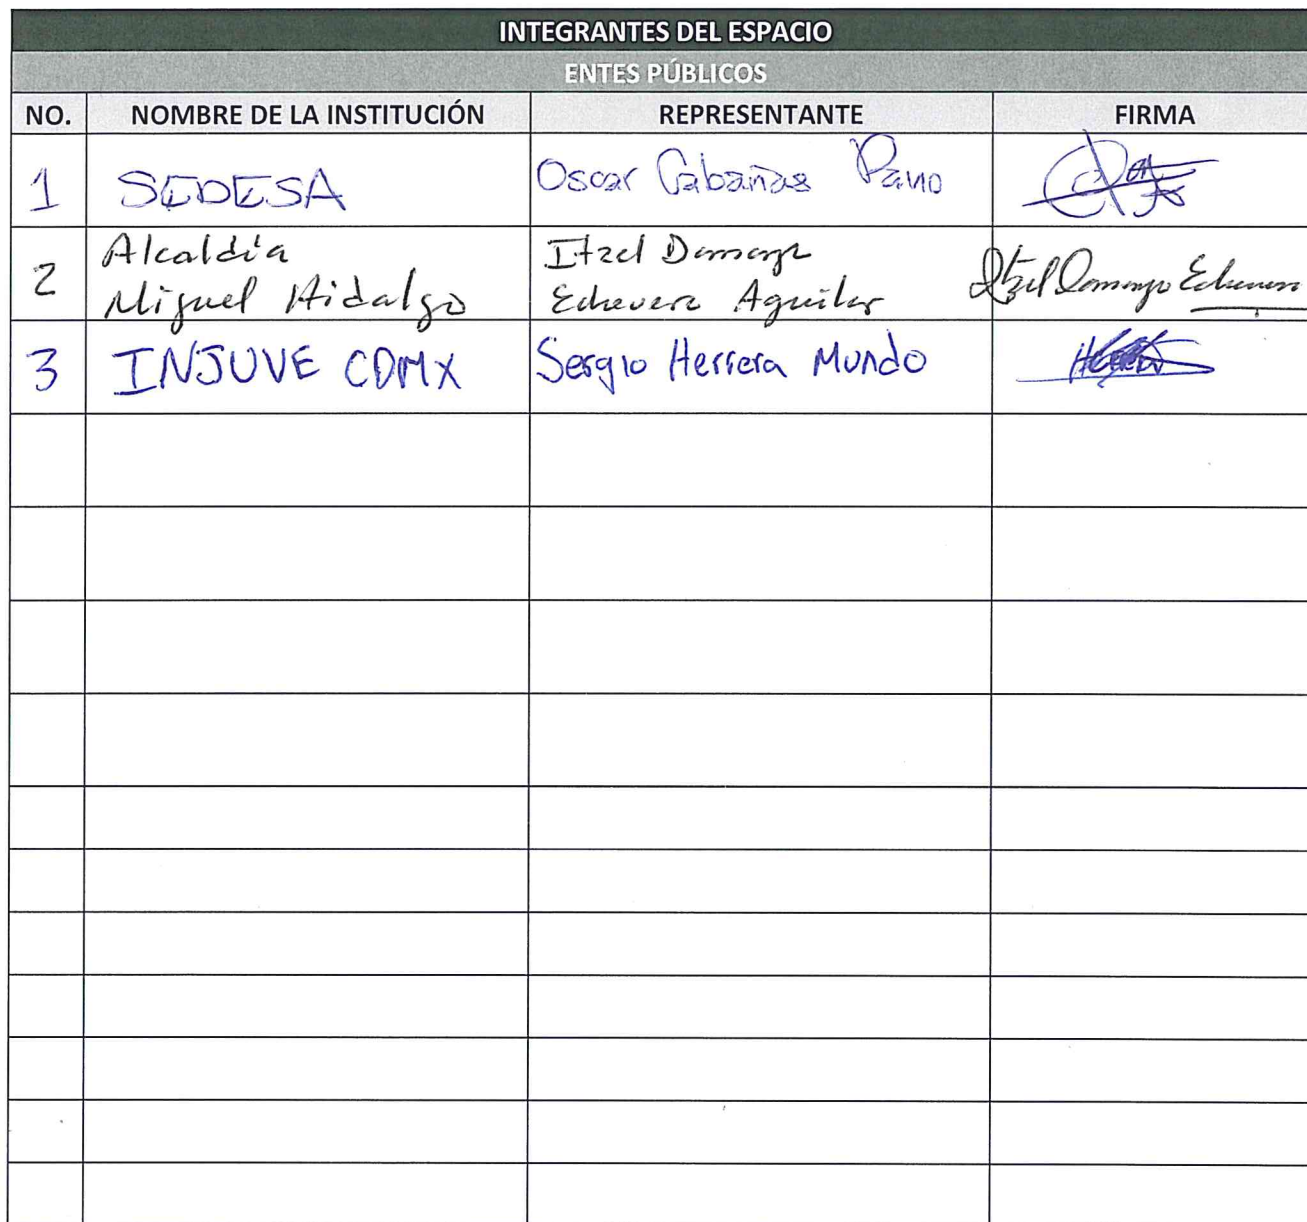 INTEGRANTES DEL ESPACIO
ENTES PÚBLICOS
NO. NOMBRE DE LA INSTITUCIÓN REPRESENTANTE FIRMA
1 SEDESA Oscar Cabañas Pano
2 Alcaldía Miguel Hidalgo Itzel Domingo Echevere Aguilar Itzel Domingo
3 INJUVE CDMX Sergio Herrera Mundo